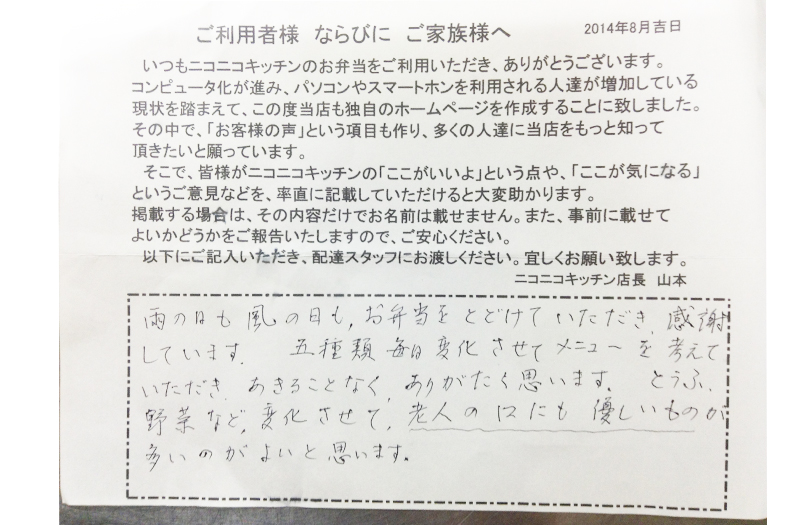 ご利用者様 ならびに ご家族様へ 2014年8月吉日
いつもニコニコキッチンのお弁当をご利用いただき、ありがとうございます。
コンピュータ化が進み、パソコンやスマートホンを利用される人達が増加している
現状を踏まえて、この度当店も独自のホームページを作成することに致しました。
その中で、「お客様の声」という項目も作り、多くの人達に当店をもっと知って
頂きたいと願っています。
そこで、皆様がニコニコキッチンの「ここがいいよ」という点や、「ここが気になる」
というご意見などを、率直に記載していただけると大変助かります。
掲載する場合は、その内容だけでお名前は載せません。また、事前に載せて
よいかどうかをご報告いたしますので、ご安心ください。
以下にご記入いただき、配達スタッフにお渡しください。宜しくお願い致します。
ニコニコキッチン店長 山本
雨の日も風の日も、お弁当をとどけていただき、感謝
しています。 五種類毎日変化させてメニューを考えて
いただき、あきることなく、ありがたく思います。 とうふ、
野菜など、変化させて、老人の口にも優しいものが
多いのがよいと思います。